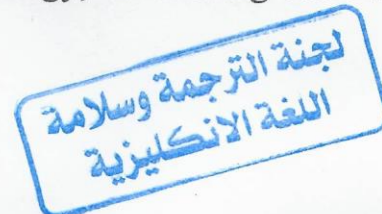 لجنة الترجمة وسلامة
اللغة الانكليزية